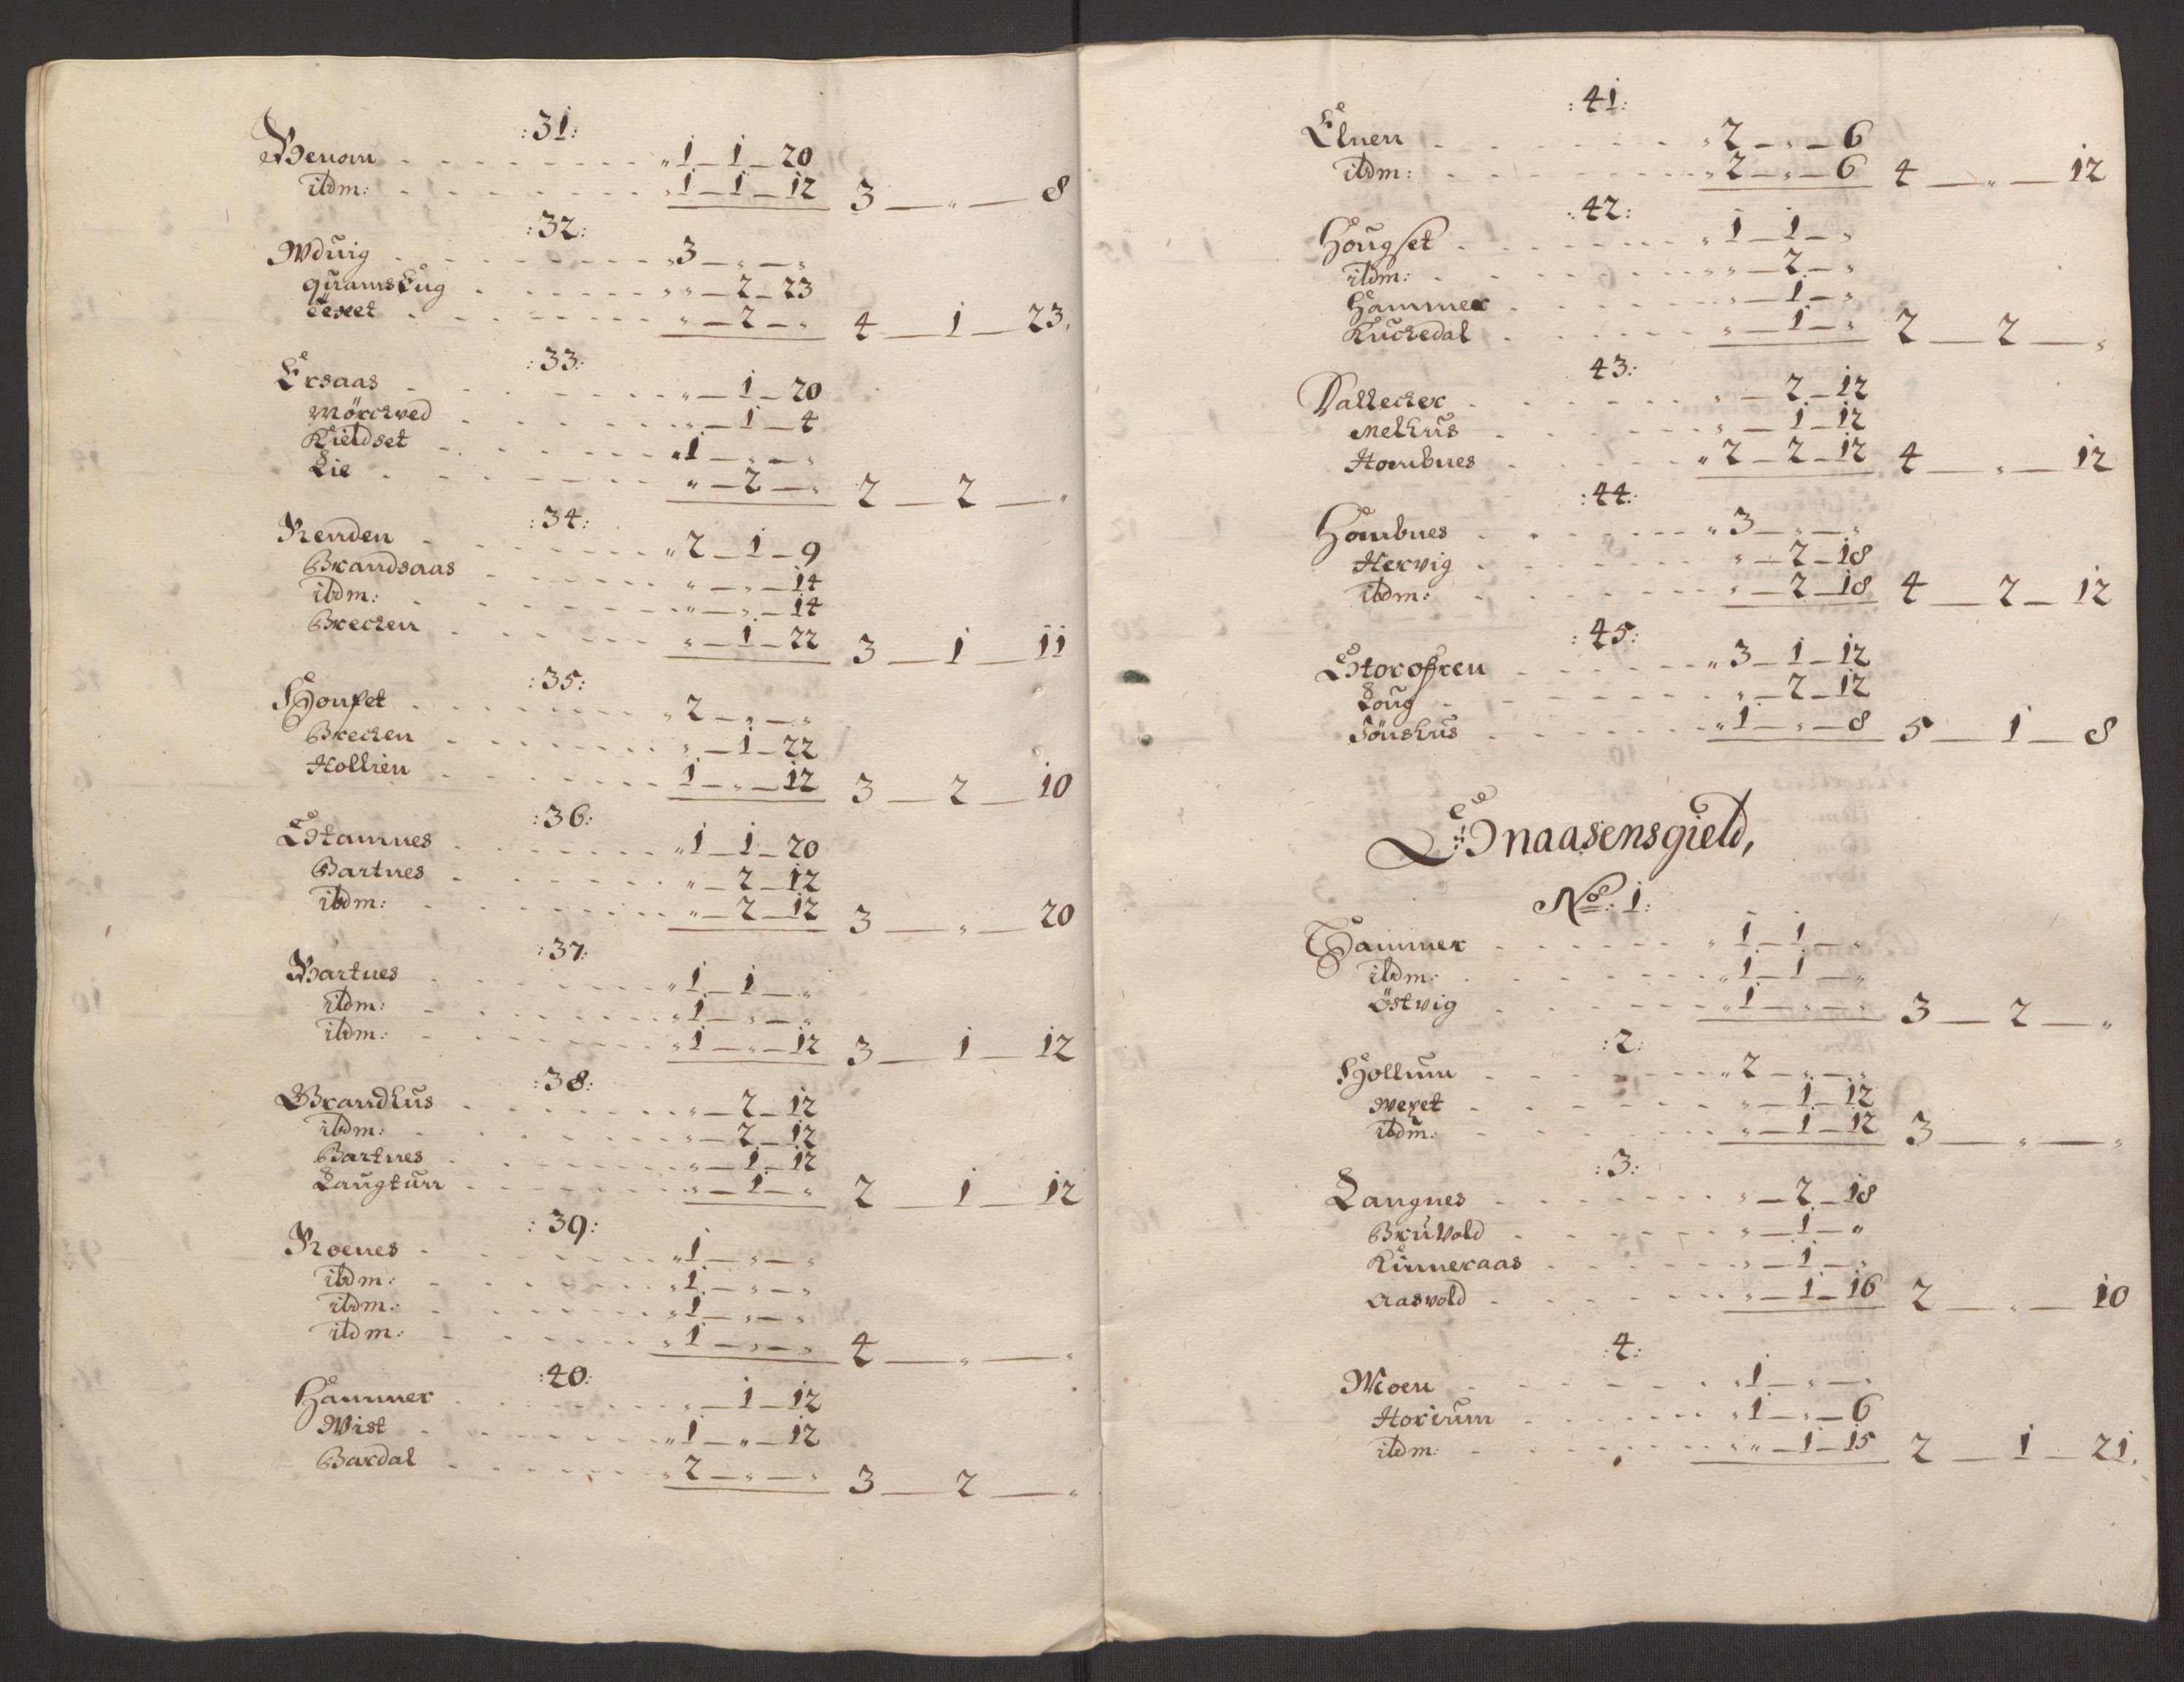 :31:
Benom - - - - - - - - " 1 _ 1 _ 20
ibdm: - - - - - - - - " 1 _ 1 _ 12 3 _ " _ 8
:32:
Wduig - - - - - - - - " 3 _ " _ "
quamsLug - - - - - - " " _ 2 _ 23
- - - - - - - - " _ 2 _ " 4 _ 1 _ 23.
:33:
Ersaas - - - - - - - - " _ 1 _ 20
Mörchved - - - - - - - " _ 1 _ 4
Kieldset - - - - - - - " 1 _ " _ "
Lie - - - - - - - - " _ 2 _ " 2 _ 2 _ "
:34:
Renden - - - - - - - " 2 _ 1 _ 9
Brandsaas - - - - - - " _ " _ 14
ibdm: - - - - - - - " _ " _ 14
Brechen - - - - - - - " _ 1 _ 22 3 _ 1 _ 11
:35:
Houset - - - - - - - " 2 _ " _ "
Brechen - - - - - - - " _ 1 _ 22
Hollien - - - - - - - 1 _ " _ 12 3 _ 2 _ 10
:36:
Stamnes - - - - - - - " 1 _ 1 _ 20
Bartnes - - - - - - - " _ 2 _ 12
ibdm: - - - - - - - " _ 2 _ 12 3 _ " _ 20
:37:
Bartnes - - - - - - - " 1 _ 1 _ "
ibdm: - - - - - - - " 1 _ " _ "
ibdm: - - - - - - - " 1 _ " _ 12 3 _ 1 _ 12
:38:
Brandhus - - - - - - - " _ 2 _ 12
ibdm: - - - - - - - " _ 2 _ 12
Bartnes - - - - - - - " _ 1 _ 12
Langtun - - - - - - - " _ 1 _ " 2 _ 1 _ 12
:39:
Roenes - - - - - - - " 1 _ " _ "
ibdm: - - - - - - - " 1 _ " _ "
ibdm: - - - - - - - " 1 _ " _ "
ibdm: - - - - - - - " 1 _ " _ " 4 _ " _ "
:40:
Hammer - - - - - - - " _ 1 _ 12
Wist - - - - - - - " 1 _ " _ 12
Bardal - - - - - - - " 2 _ " _ " 3 _ 2 _ "
:41:
Elnen - - - - - - - " 2 _ " _ 6
ibdm: - - - - - - - " 2 _ " _ 6 4 _ " _ 12
:42:
Hougset - - - - - - - " 1 _ 1 _ "
ibdm: - - - - - - - " " _ 2 _ "
Hammer - - - - - - - " _ 1 _ "
Kuchedal - - - - - - " _ 1 _ " 2 _ 2 _ "
:43:
Vallecher - - - - - - " _ 2 _ 12
Melhus - - - - - - " _ 1 _ 12
Hombnes - - - - - " 2 _ 2 _ 12 4 _ " _ 12
:44:
Hombnes - - - - - - " 3 _ " _ "
Hervig - - - - - - - " _ 2 _ 18
ibdm: - - - - - - - " _ 2 _ 18 4 _ 2 _ 12
:45:
Storofren - - - - - - " 3 _ 1 _ 12
Loug - - - - - - - " _ 2 _ 12
Jönshus - - - - - - " 1 _ " _ 8 5 _ 1 _ 8
Snaasensgield,
No: 1:
Hammer - - - - - - " 1 _ 1 _ "
ibdm: - - - - - - - " 1 _ 1 _ "
Östvig - - - - - - " 1 _ " _ " 3 _ 2 _ "
:2:
Hollum - - - - - - - " 2 _ " _ "
Mexet - - - - - - - " _ 1 _ 12
ibdm: - - - - - - - " _ 1 _ 12 3 _ " _ "
:3:
Langnes - - - - - - - " _ 2 _ 18
Bruvold - - - - - - - " _ 1 _ "
Kinneraas - - - - - - " _ 1 _ "
Aasvold - - - - - - - " _ 1 _ 16 2 _ " _ 10
:4:
Moen - - - - - - - " 1 _ " _ "
Horium - - - - - - " 1 _ " _ 6
ibdm: - - - - - - - " " _ 1 _ 15 2 _ 1 _ 21.